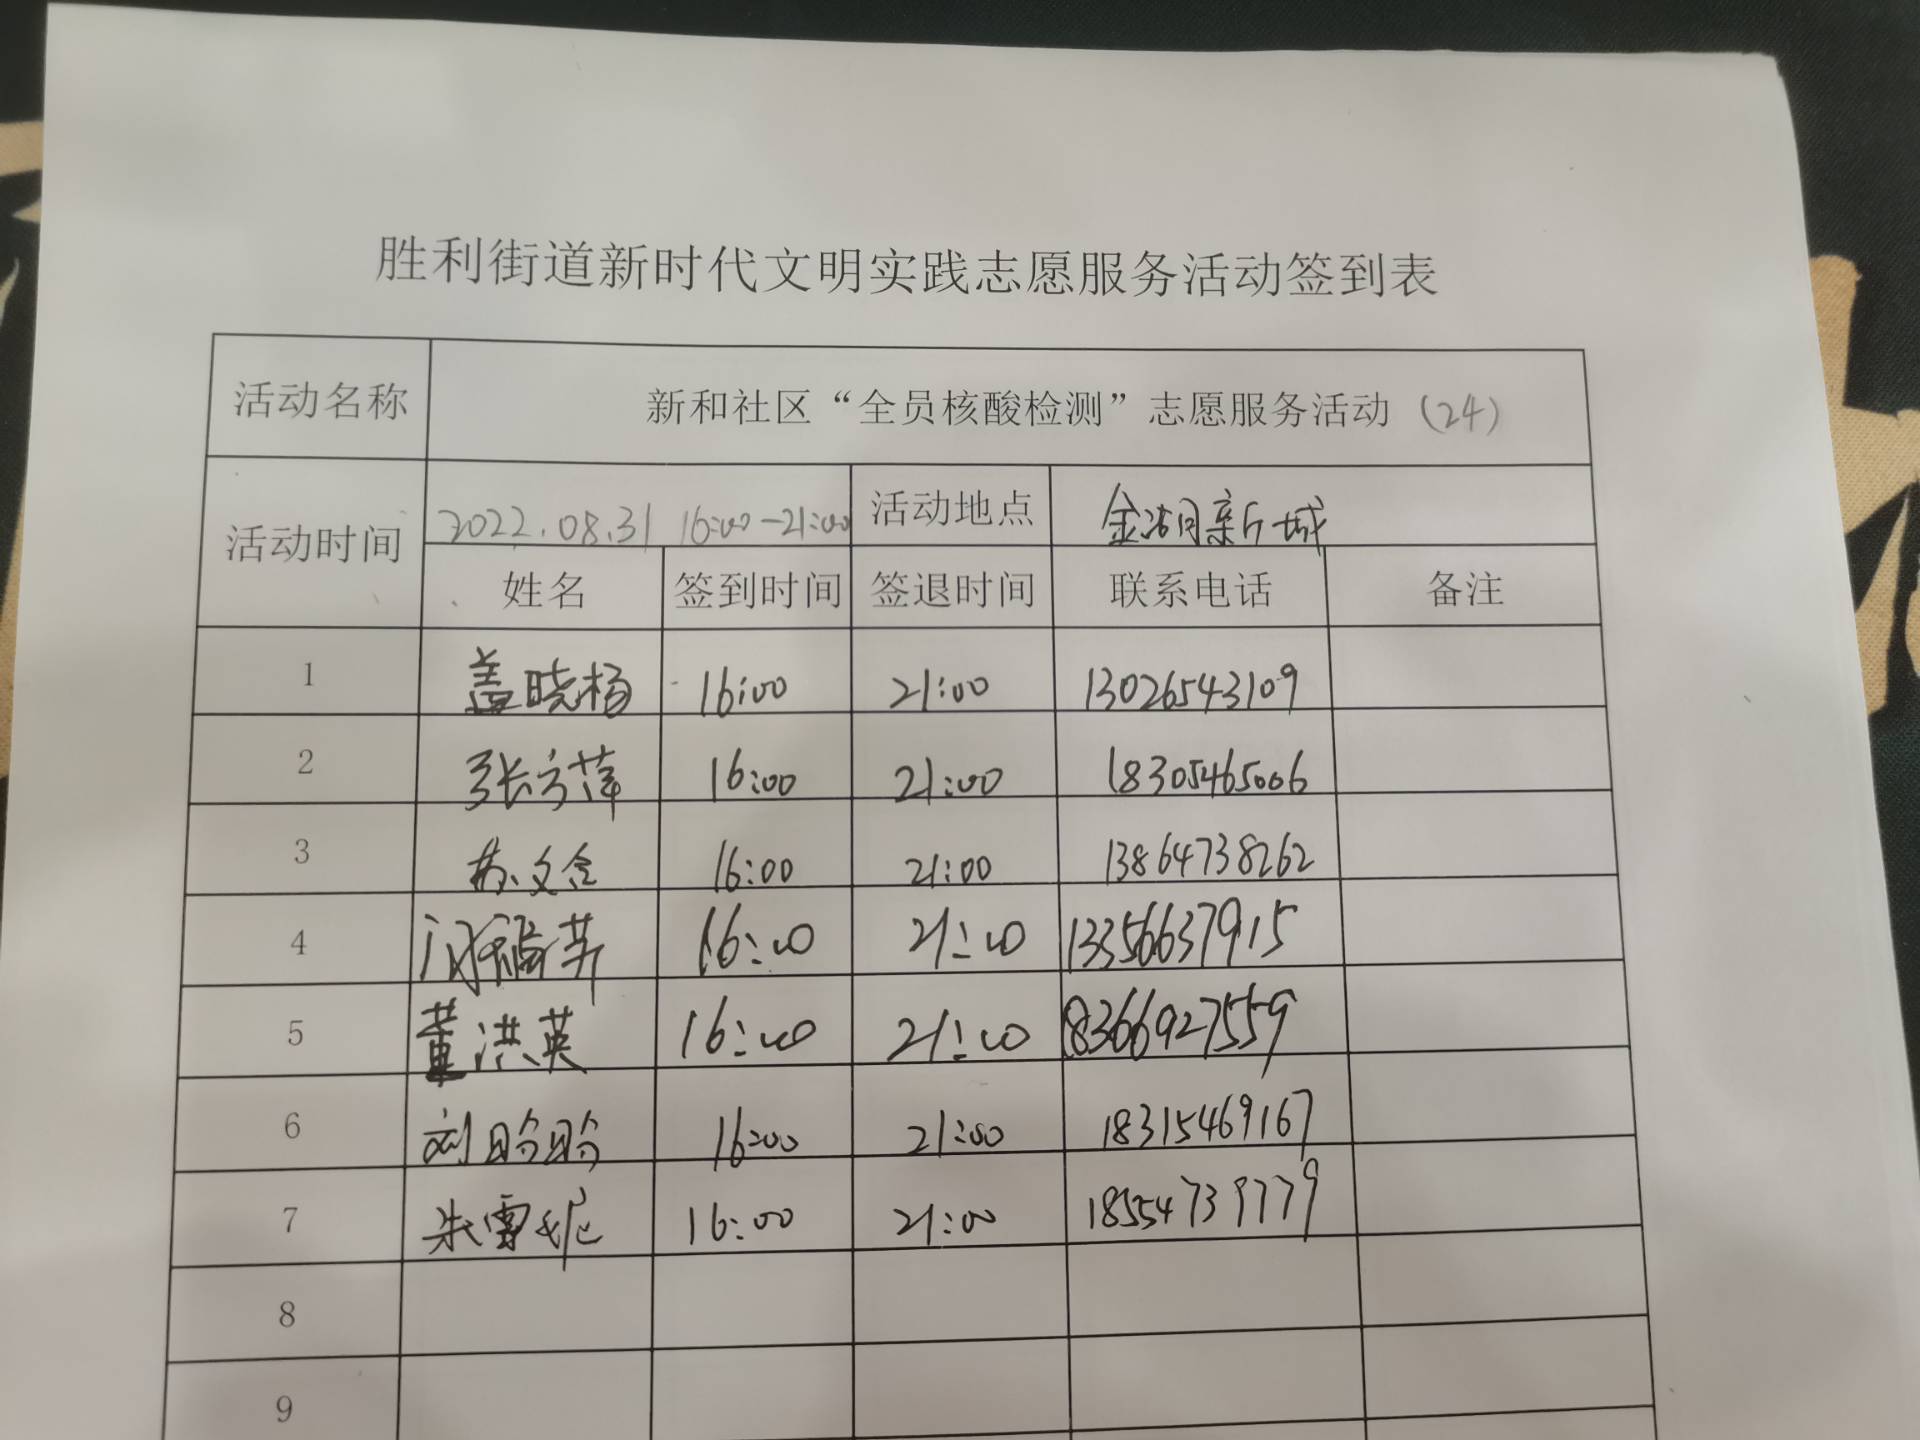 胜利街道新时代文明实践志愿服务活动签到表
活动名称 新和社区“全员核酸检测”志愿服务活动 (24)
活动时间 2022.08.31 16:00-21:00 活动地点 金湖新城
姓名 签到时间 签退时间 联系电话 备注
1 盖晓杨 16:00 21:00 13026543109
2 张方萍 16:00 21:00 18305465006
3 苏文 16:00 21:00 13864738262
4 16:00 21:00 13356637915
5 董洪英 16:00 21:00 18366927559
6 刘盼盼 16:00 21:00 18315469167
7 朱雪妮 16:00 21:00 18554739779
8
9